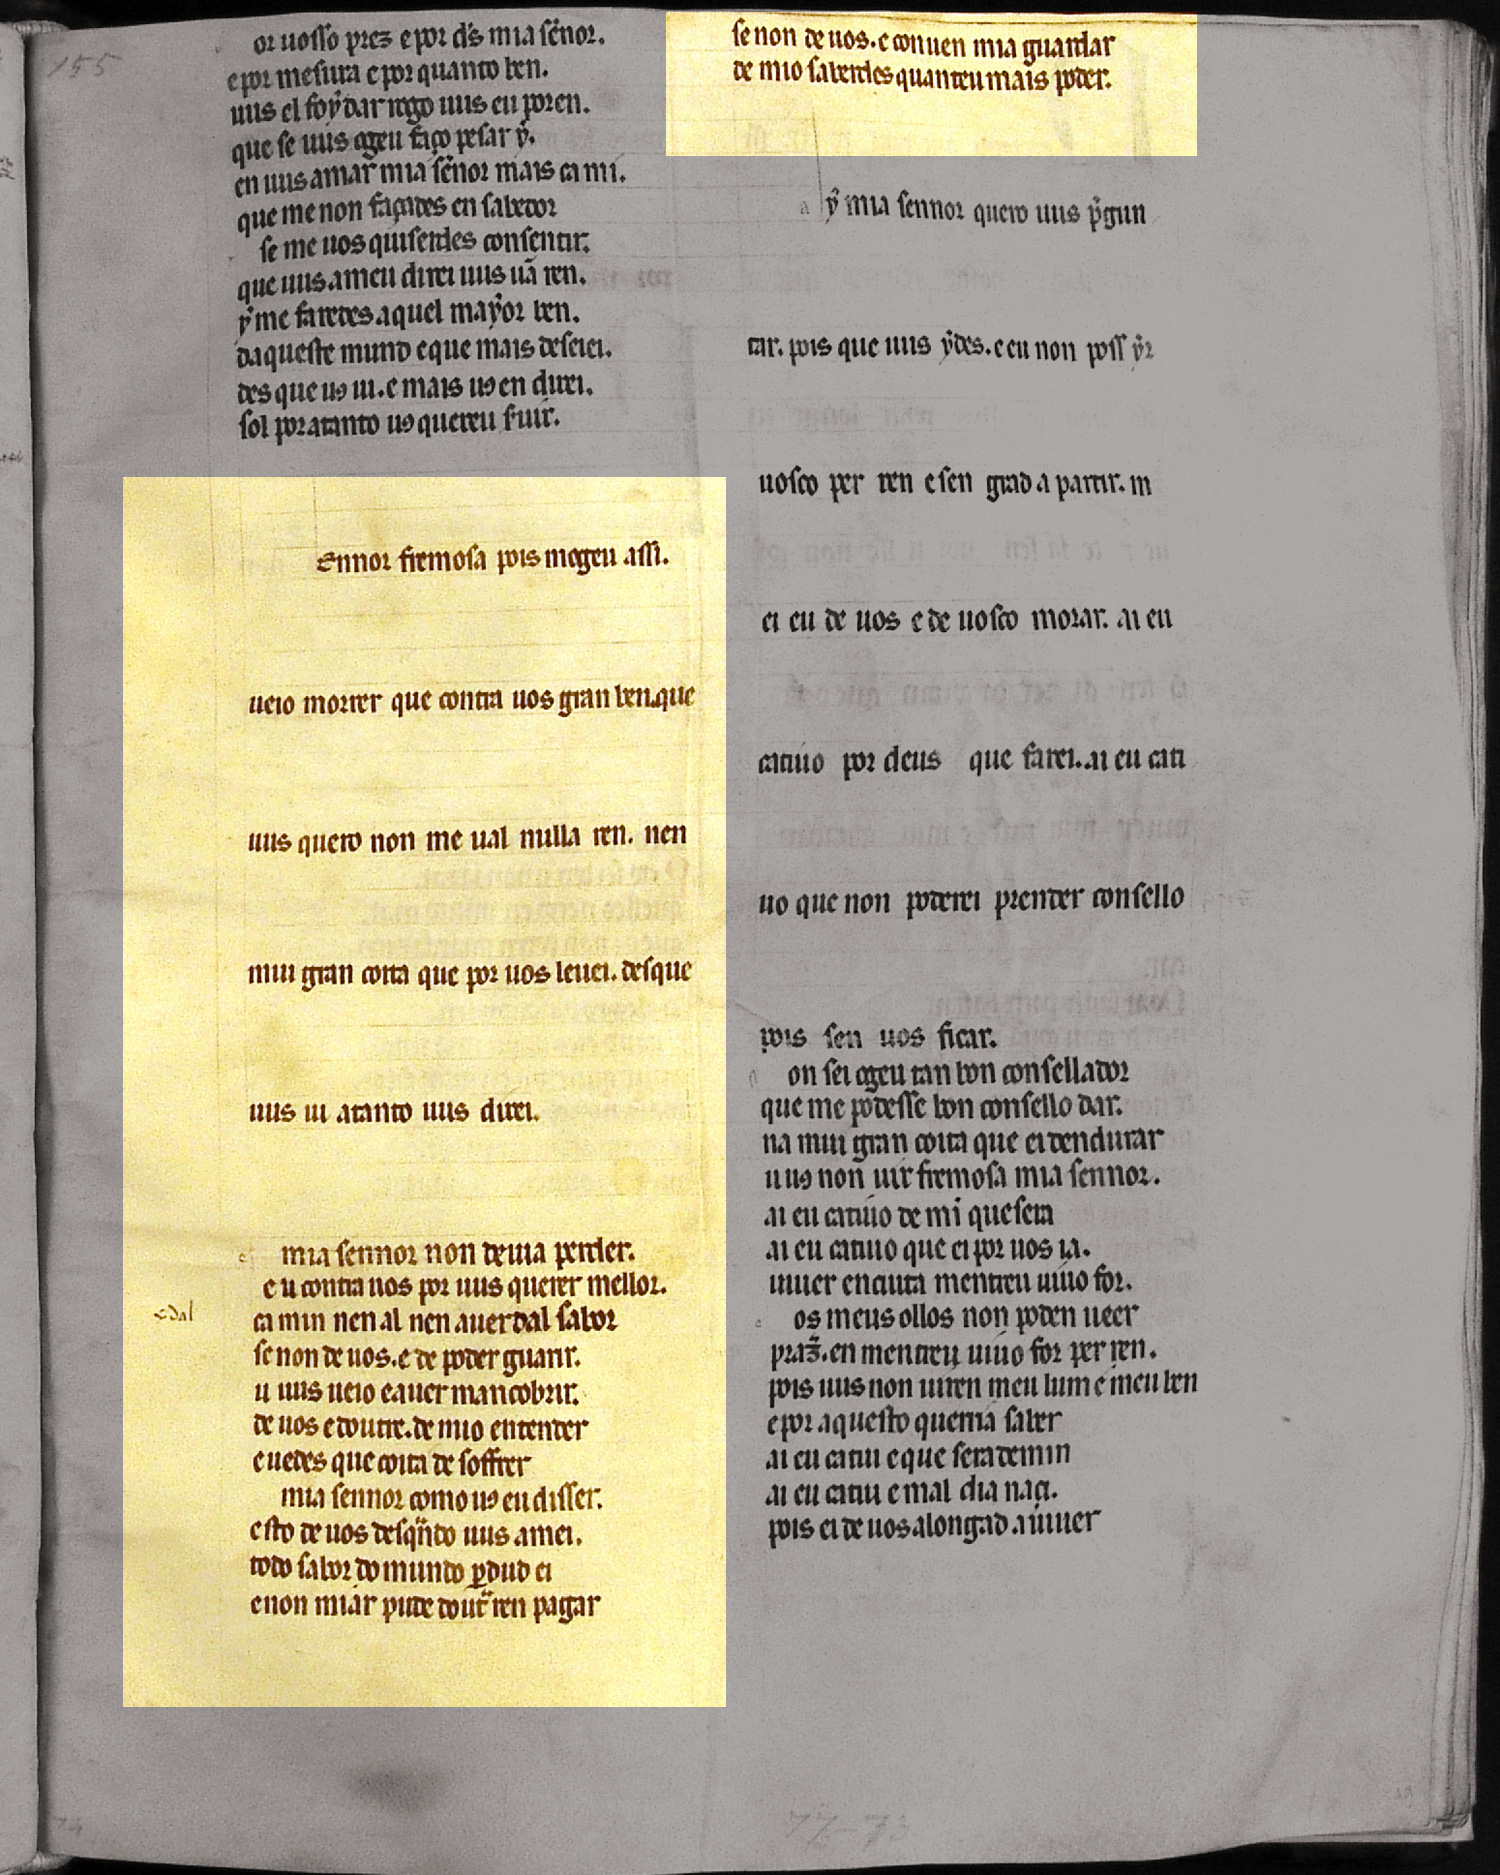 155
or uosso prez e por ds mia señor.
e por mesura e por quanto ben.
uus el foy dar rogo uus eu poren.
que se uus ogeu faço pesar y.
en uus amar mia señor mais ca mi.
que me non façades en sabedor
se me uos quiserdes consentir.
que uus ameu direi uus ua ren.
y me faredes aquel mayor ben.
daqueste mund e que mais deseiei.
des que uꝯ ui. e mais uꝯ en direi.
sol por atanto uꝯ querreu seruir.
ennor fremosa pois mogeu assi.
ueio morrer que contra uos gran ben. que
uus quero non me ual nulla ren. nen
mui gran coita que por uos leuei. desque
uus ui atanto uus direi.
e mia sennor non deuia perder.
eu contra uos por uus querer mellor.
ca min nen al nen auer dal sabor
edal
se non de uos. e de poder guarir.
u uus ueio e auer mancobrir.
de uos e doutre. de mio entender
e uedes que coita de soffrer
mia sennor como uꝯ eu disser.
esto de uos desqndo uus amei.
todo sabor do mundo ꝑdud ei
e non miar pude dout ren pagar
se non de uos. e conuen mia guardar
de mio saberdes quanteu mais poder.
a y mia sennor quero uus pgun
tar. pois que uus ydes. e eu non poss yr
uosco per ren e sen grad a partir. m
ei eu de uos e de uosco morar. ai eu
catiuo por deus que farei. ai eu cati
uo que non poderei prender consello
pois sen uos ficar.
n on sei ogeu tan bon consellador
que me podesse bon consello dar.
na mui gran coita que ei dendurar
u uꝯ non uir fremosa mia sennor.
ai eu catiuo de mi que sera
ai eu catiuo que ei por uos ia.
uiuer en cuita mentreu uiuo for.
os meus ollos non poden ueer
praz. en mentreu uiuo for per ren.
pois uus non uiren meu lum e meu ben
e por aquesto querria saber
ai eu catiu e que sera de min
ai eu catiu e mal dia naci.
pois ei de uos alongad a uiuer
77-73